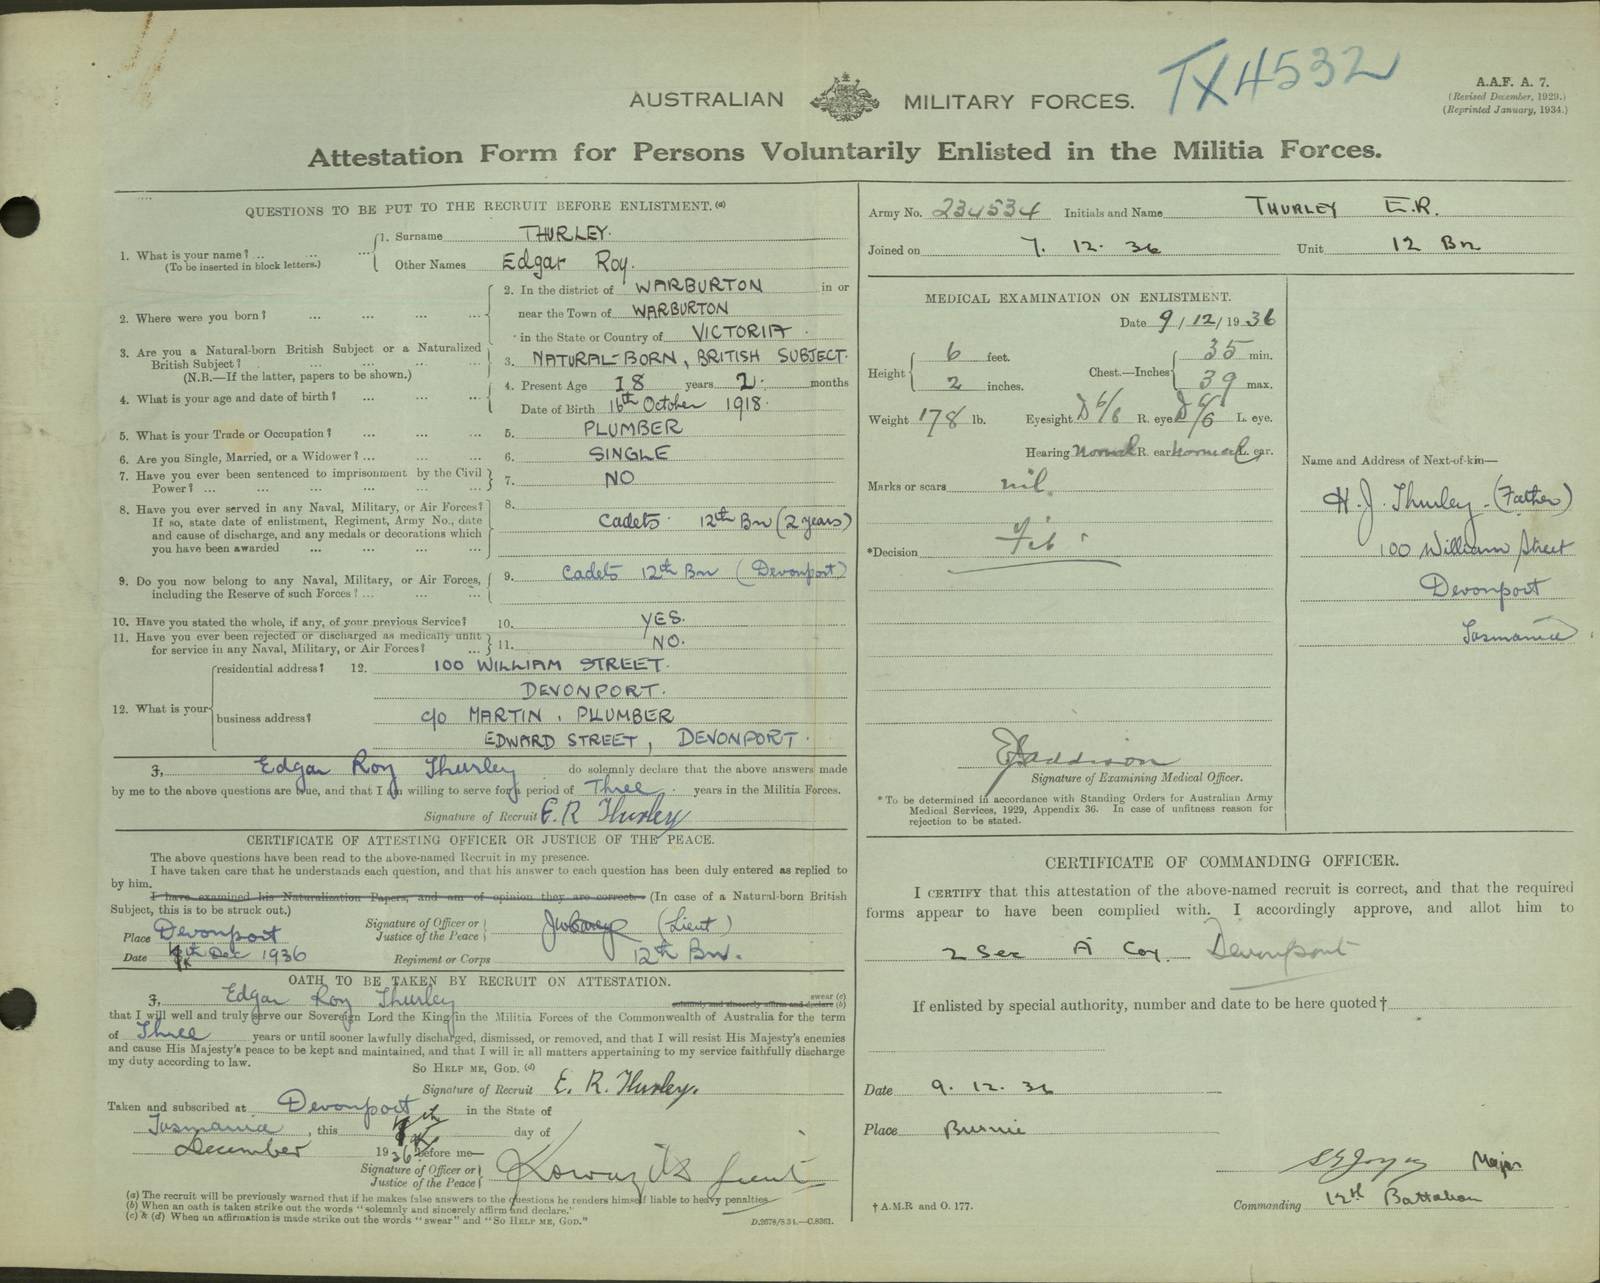 TX4532
A.A.F. A. 7.
(Revised December, 1929.)
(Reprinted January, 1934.)
AUSTRALIAN MILITARY FORCES.
Attestation Form for Persons Voluntarily Enlisted in the Militia Forces.
QUESTIONS TO BE PUT TO THE RECRUIT BEFORE ENLISTMENT.(a)
1. What is your name? .. ... ... 1. Surname THURLEY.
(To be inserted in block letters.) Other Names Edgar Roy.
2. Where were you born? ... ... ... ... 2. In the district of WARBURTON in or
near the Town of WARBURTON
in the State or Country of VICTORIA.
3. Are you a Natural-born British Subject or a Naturalized
British Subject? . ... ... ... ... 3. NATURAL-BORN, BRITISH SUBJECT.
(N.B.—If the latter, papers to be shown.)
4. What is your age and date of birth? ... ... ... 4. Present Age 18 years 2. months
Date of Birth 16th October 1918.
5. What is your Trade or Occupation? ... ... ... 5. PLUMBER
6. Are you Single, Married, or a Widower? ... ... ... 6. SINGLE
7. Have you ever been sentenced to imprisonment by the Civil
Power? ... ... ... ... ... ... 7. NO
8. Have you ever served in any Naval, Military, or Air Forces? 8.
If so, state date of enlistment, Regiment, Army No., date Cadets. 12th Bn (2 years)
and cause of discharge, and any medals or decorations which
you have been awarded ... ... ... ...
9. Do you now belong to any Naval, Military, or Air Forces, 9. Cadets 12th Bn (Devonport)
including the Reserve of such Forces? ... ... ...
10. Have you stated the whole, if any, of your previous Service? 10. YES.
11. Have you ever been rejected or discharged as medically unfit
for service in any Naval, Military, or Air Forces? ... 11. NO.
residential address? 12. 100 WILLIAM STREET.
DEVONPORT.
12. What is your business address? c/o MARTIN, PLUMBER
EDWARD STREET, DEVONPORT.
I, Edgar Roy Thurley do solemnly declare that the above answers made
by me to the above questions are true, and that I am willing to serve for a period of Three. years in the Militia Forces.
Signature of Recruit E. R Thurley
CERTIFICATE OF ATTESTING OFFICER OR JUSTICE OF THE PEACE.
The above questions have been read to the above-named Recruit in my presence.
I have taken care that he understands each question, and that his answer to each question has been duly entered as replied to
by him.
I have examined his Naturalization Papers, and am of opinion they are correct. (In case of a Natural-born British
Subject, this is to be struck out.)
Signature of Officer or (Lieut)
Justice of the Peace
Place Devonport
Date th Dec 1936 Regiment or Corps 12th Bn.
OATH TO BE TAKEN BY RECRUIT ON ATTESTATION.
I, Edgar Roy Thurley swear (c)
solemnly and sincerely affirm and declare (b)
that I will well and truly serve our Sovereign Lord the King in the Militia Forces of the Commonwealth of Australia for the term
of Three years or until sooner lawfully discharged, dismissed, or removed, and that I will resist His Majesty's enemies
and cause His Majesty's peace to be kept and maintained, and that I will in all matters appertaining to my service faithfully discharge
my duty according to law. So HELP ME, GOD. (d)
Signature of Recruit E. R. Thurley.
Taken and subscribed at Devonport in the State of
Tasmania, this day of
December 1936 before me—
Signature of Officer or Lieut
Justice of the Peace
(a) The recruit will be previously warned that if he makes false answers to the questions he renders himself liable to heavy penalties.
(b) When an oath is taken strike out the words "solemnly and sincerely affirm and declare."
(c) & (d) When an affirmation is made strike out the words "swear" and "So HELP ME, GOD." D.2678/8.34.—C.8361.
Army No. 234534 Initials and Name THURLEY E.R.
Joined on 7. 12. 36 Unit 12 Bn
MEDICAL EXAMINATION ON ENLISTMENT.
Date 9/12/1936
Height 6 feet. 2 inches. Chest.—Inches 35 min. 39 max.
Weight 178 lb. Eyesight D 6/6 R. eye D 6/6 L. eye.
Hearing Normal R. ear normal L. ear.
Marks or scars nil.
*Decision Fit
Signature of Examining Medical Officer.
* To be determined in accordance with Standing Orders for Australian Army
Medical Services, 1929, Appendix 36. In case of unfitness reason for
rejection to be stated.
Name and Address of Next-of-kin—
H. J. Thurley. (Father)
100 William Street
Devonport
Tasmania.
CERTIFICATE OF COMMANDING OFFICER.
I CERTIFY that this attestation of the above-named recruit is correct, and that the required
forms appear to have been complied with. I accordingly approve, and allot him to
2 Sec A Coy. Devonport
If enlisted by special authority, number and date to be here quoted †
Date 9. 12. 36
Place Burnie
Major
Commanding 12th Battalion
† A.M.R and O. 177.